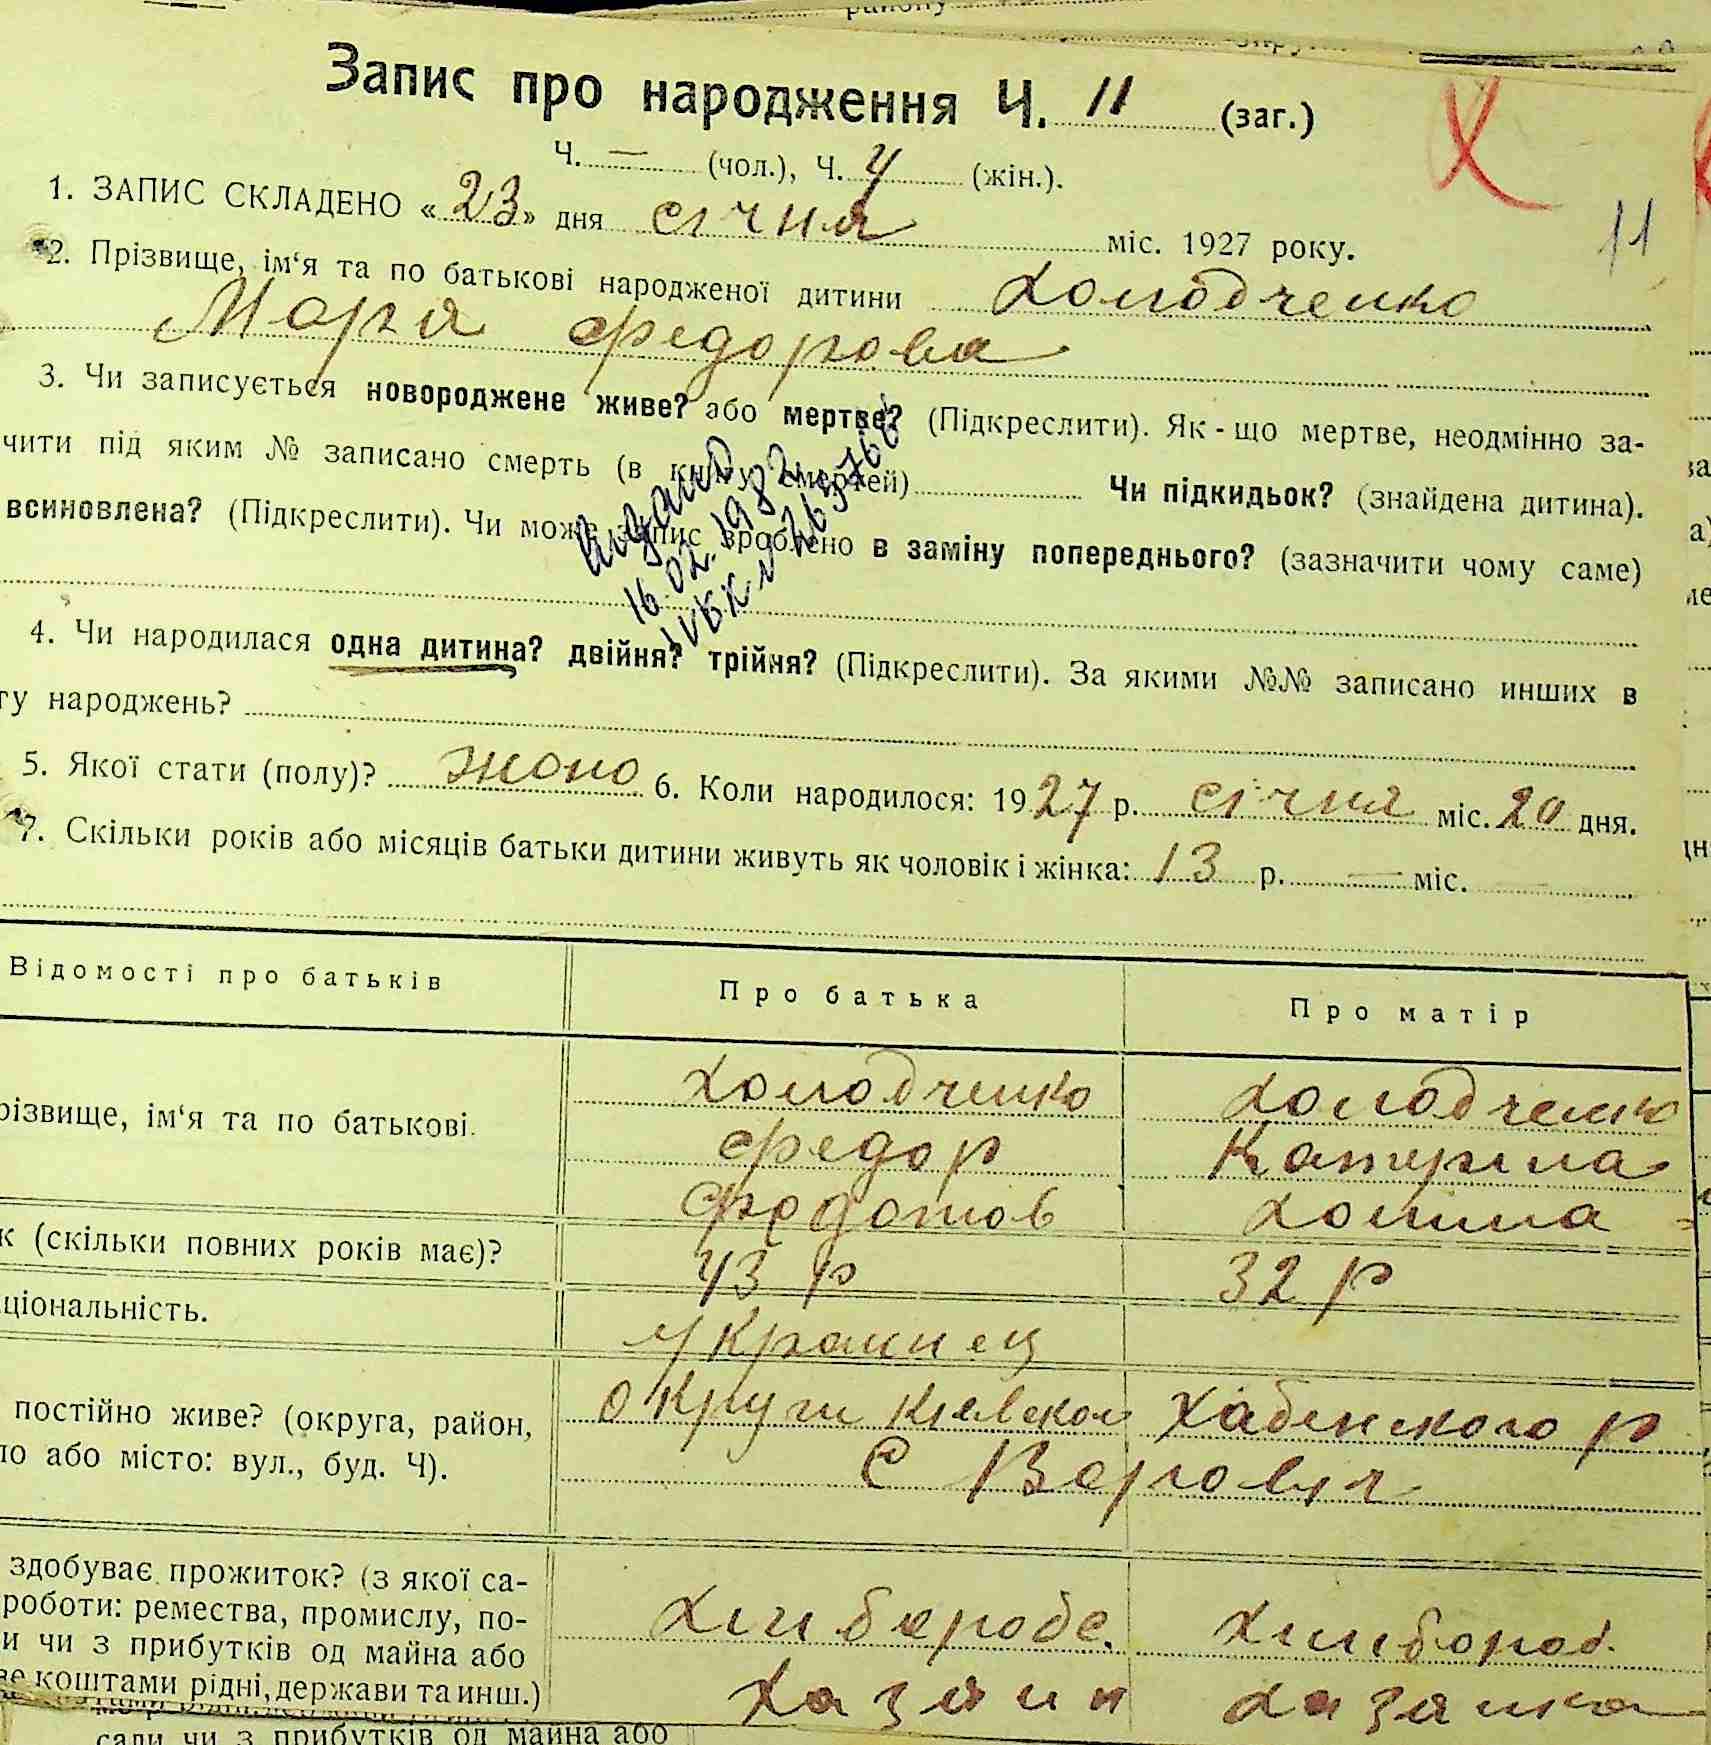 району
Запис про народження Ч. 11 (заг.)
Ч. — (чол.), Ч. 4 (жін.).
11
1. ЗАПИС СКЛАДЕНО «23» дня січня міс. 1927 року.
2. Прізвище, ім‘я та по батькові народженої дитини Холодченко
Марія Федорова
3. Чи записується новороджене живе? або мертве? (Підкреслити). Як-що мертве, неодмінно за-
чити під яким № записано смерть (в книгу смертей) Чи підкидьок? (знайдена дитина).
всиновлена? (Підкреслити). Чи може запис зроблено в заміну попереднього? (зазначити чому саме)
16.02.1982
4. Чи народилася одна дитина? двійня? трійня? (Підкреслити). За якими №№ записано инших в
гу народжень?
5. Якої стати (полу)? жоно 6. Коли народилося: 1927 р. січня міс. 20 дня.
7. Скільки років або місяців батьки дитини живуть як чоловік і жінка: 13 р. — міс.
Відомості про батьків Про батька Про матір
різвище, ім‘я та по батькові. Холодченко Холодченко
Федор Катерина
Федотов
к (скільки повних років має)? 43 р 32 р
ціональність. Украинец
постійно живе? (округа, район, Округи Киевской Хабенского р
ло або місто: вул., буд. Ч). С Варовск
здобуває прожиток? (з якої са-
роботи: ремества, промислу, по- Хлибороб. Хлибороб.
и чи з прибутків од майна або
ве коштами рідні, держави та инш.) Хазяин Хазяика
сади чи з прибутків од майна або